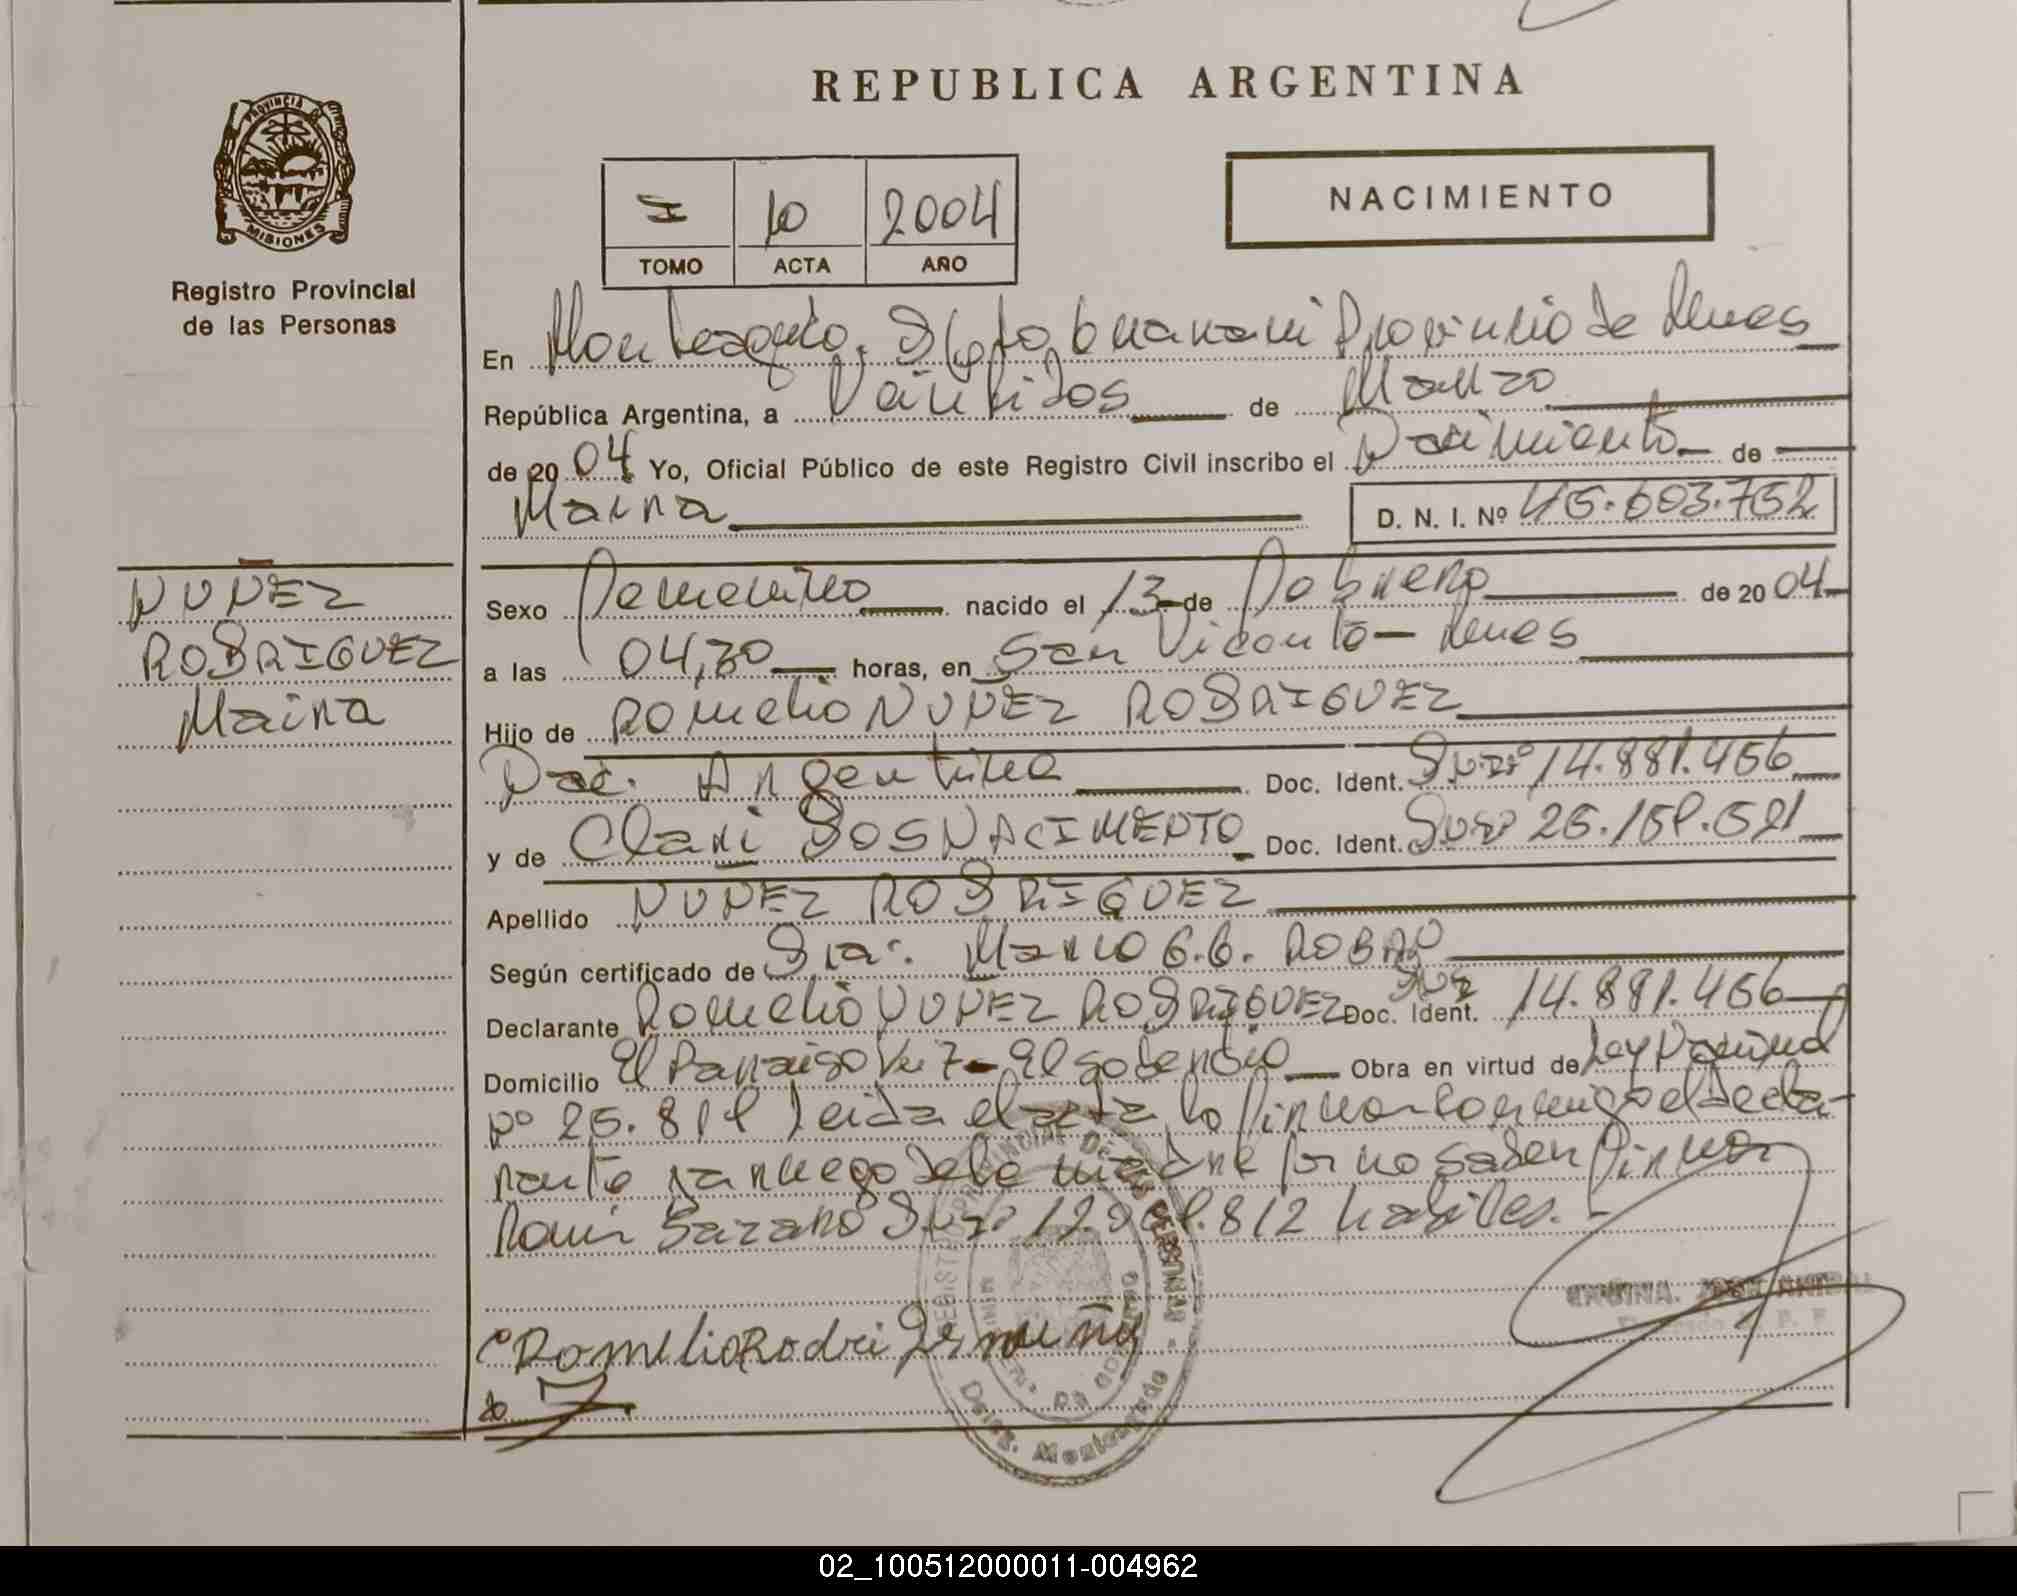 REPUBLICA ARGENTINA
PROVINCIA DE
MISIONES
Registro Provincial
de las Personas
I 10 2004
TOMO ACTA AÑO
NACIMIENTO
En Monteagudo. Dpto, Guarani Provincia de Mnes
República Argentina, a Veintidos de Marzo
de 2004 Yo, Oficial Público de este Registro Civil inscribo el Nacimiento de
Maira D. N. I. Nº 45.603.752
NUÑEZ
RODRIGUEZ
Maira
Sexo Femenino nacido el 13 de Febrero de 2004
a las 04,30 horas, en San Vicente - Mnes
Hijo de Romelio NUÑEZ RODRIGUEZ
Nac. Argentina Doc. Ident. 14.881.456
y de Clari DOS NACIMENTO Doc. Ident.
Apellido NUÑEZ RODRIGUEZ
Según certificado de Dra. Mario G.G.
Declarante Romelio NUÑEZ RODRIGUEZ Doc. Ident. 14.881.456
Domicilio El Paraiso - El Soberbio Obra en virtud de Ley Nacional
Nº 25.819 Leida el acta lo firman conmigo el decla-
rante y a ruego de la madre por no saber firmar
habiles.
Romelio Rodriguez nuñez
REGISTRO PROVINCIAL DE LAS PERSONAS
Deleg. Monteagudo
02_100512000011-004962